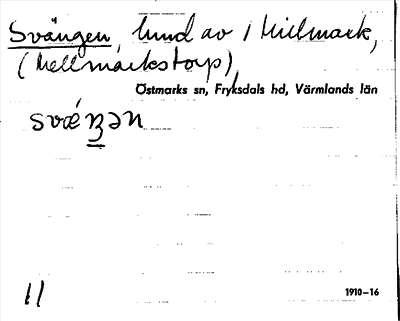 Svängen, lund av / Millmark,
(Mellmarkstorp),
Östmarks sn, Fryksdals hd, Värmlands län
11
1910–16